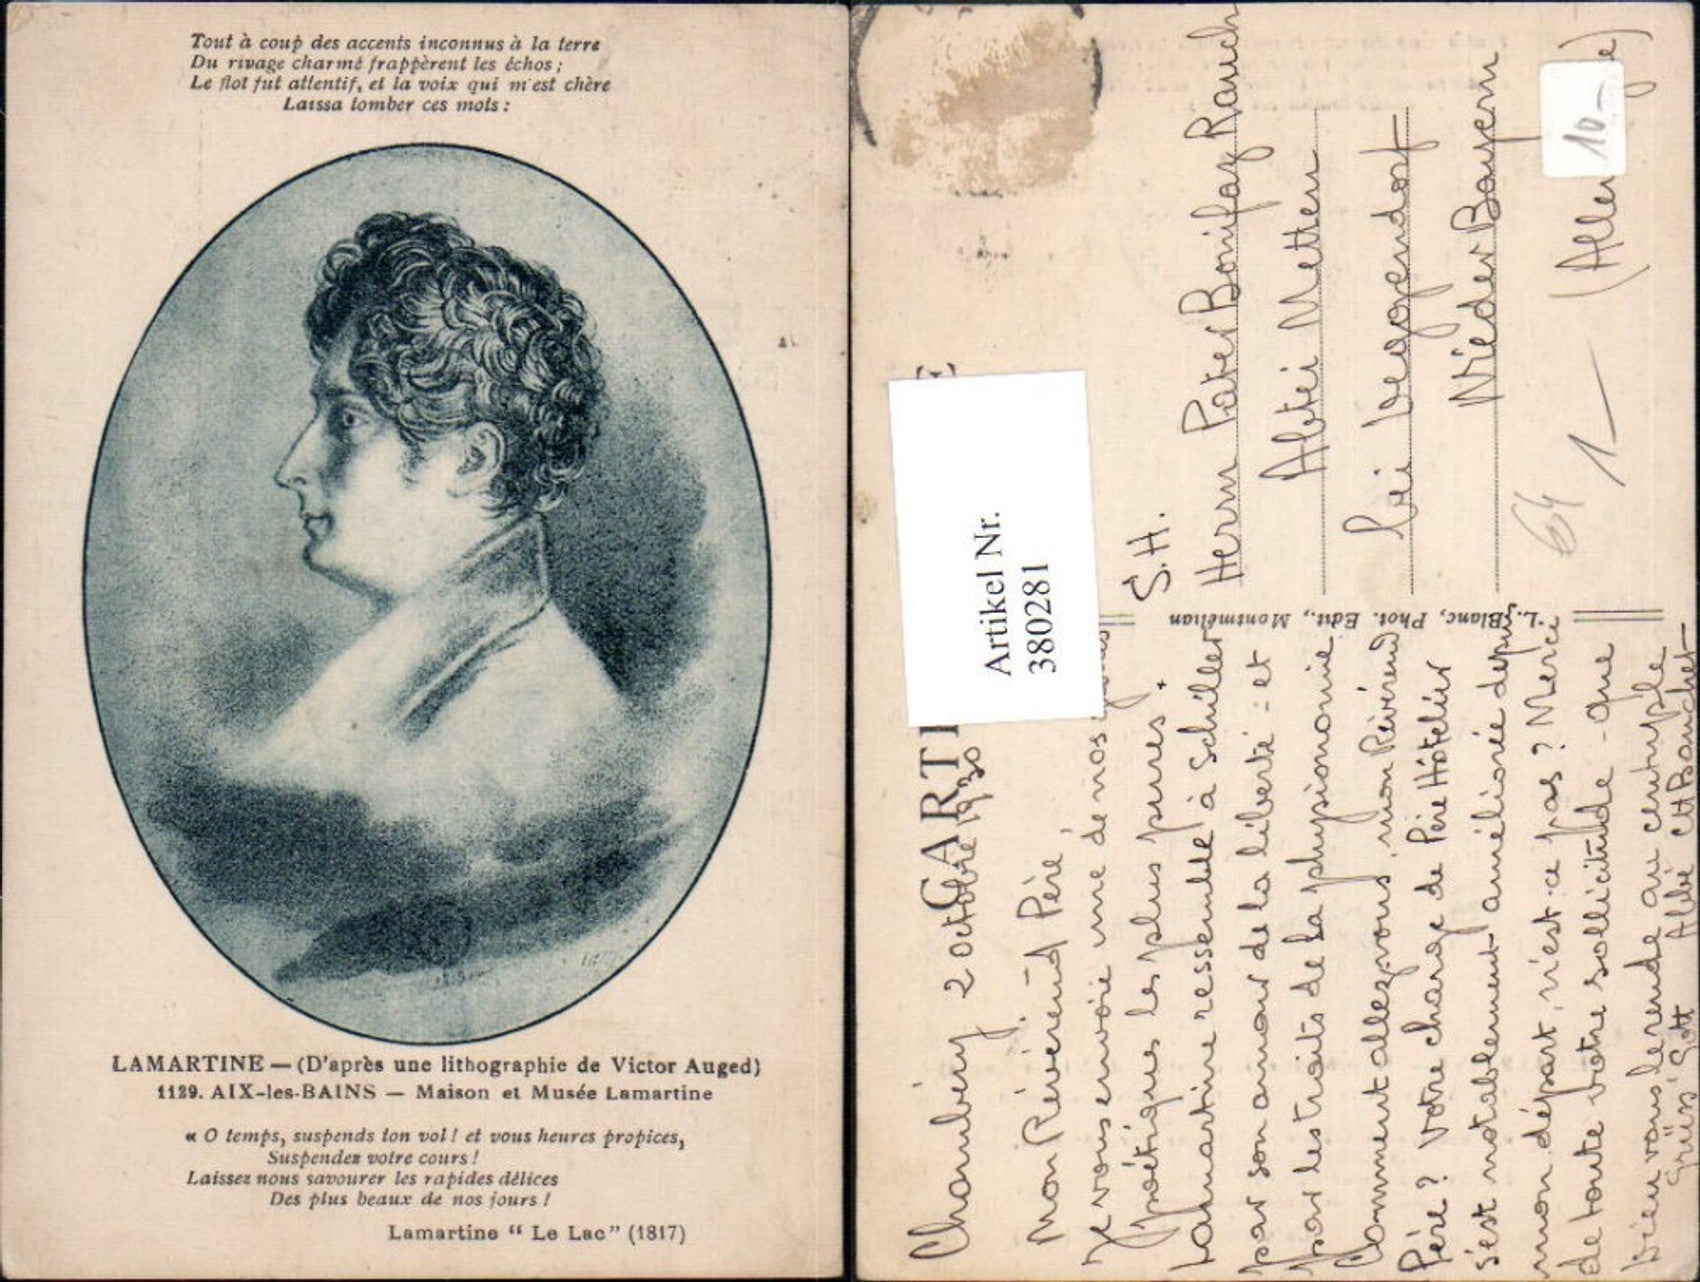 Tout à coup des accents inconnus à la terre
Du rivage charmé frappèrent les échos ;
Le flot fut attentif, et la voix qui m'est chère
Laissa tomber ces mots :
LAMARTINE — (D'après une lithographie de Victor Auged)
1129. AIX-les-BAINS — Maison et Musée Lamartine
« O temps, suspends ton vol ! et vous heures propices,
Suspendez votre cours !
Laissez nous savourer les rapides délices
Des plus beaux de nos jours !
Lamartine “ Le Lac” (1817)
CARTE
Artikel Nr.
380281
Chambéry 2 octobre 1930
Mon Révérend Père,
Je vous envoie une de nos
poétiques les plus pures.
Lamartine ressemble à Schiller
par son amour de la liberté - et
par les traits de la physionomie
Comment allez-vous, mon Révérend
Père ? Votre charge de Père Hôtelier
s'est notablement améliorée depuis
mon départ, n'est-ce pas ? Merci
de toute votre sollicitude - Que
Dieu vous le rende au centuple
Grüss Gott Abbé
L. Blanc, Phot. Edit., Montmélian
S. H.
Herrn Pater Bonifaz Rauch
Abtei Metten
bei Deggendorf
Nieder Bayern
(Alle
10-
1-
64